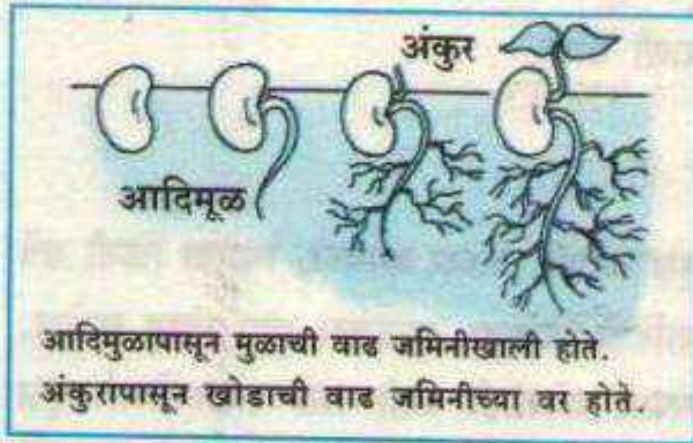 अंकुर
आदिमूळ
आदिमुळापासून मुळाची वाढ जमिनीखाली होते.
अंकुरापासून खोडाची वाढ जमिनीच्या वर होते.